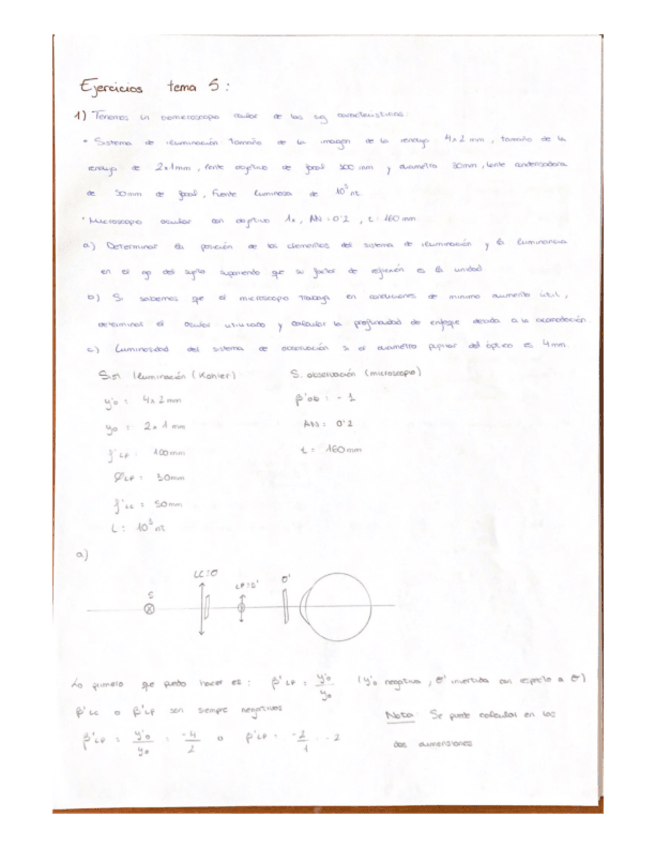 Ejercicios tema 5:
1) Tenemos un biomicroscopio ocular de las sig características:
• Sistema de iluminación tamaño de la imagen de la rendija 4x2 mm, tamaño de la
rendija de 2x1mm, lente de focal mm y diámetro 30mm, lente condensadora
de 50mm de focal, Fuente luminosa de 10⁵ nt.
• Microscopio ocular con objetivo 1x, AN=0'2, t=160 mm
a) Determinar la posición de los elementos del sistema de iluminación y la luminancia
en el ojo del sujeto suponiendo que su factor de es la unidad.
b) Si sabemos que el microscopio trabaja en condiciones de mínimo aumento útil,
determinar el ocular utilizado y calcular la profundidad de enfoque debida a la acomodación.
c) Luminosidad del sistema de observación si el diámetro pupilar del óptico es 4mm.
Sist. Iluminación (Kohler)
S. observación (microscopio)
y'o = 4x2mm
β'ob = -1
yo = 2x1 mm
AN = 0'2
f'LP = 100mm
t = 160mm
ØLP = 30mm
f'LC = 50mm
L = 10⁵ nt
a)
LC≡O
LP≡S'
O'
S
Lo primero que puedo hacer es: β'LP = y'o/yo (y'o negativa, O' invertida con respecto a O)
β'LC o β'LP son siempre negativos
Nota: Se puede calcular en las
β'LP = y'o/yo = -4/2 o β'LP = -2/1 = -2
dos dimensiones